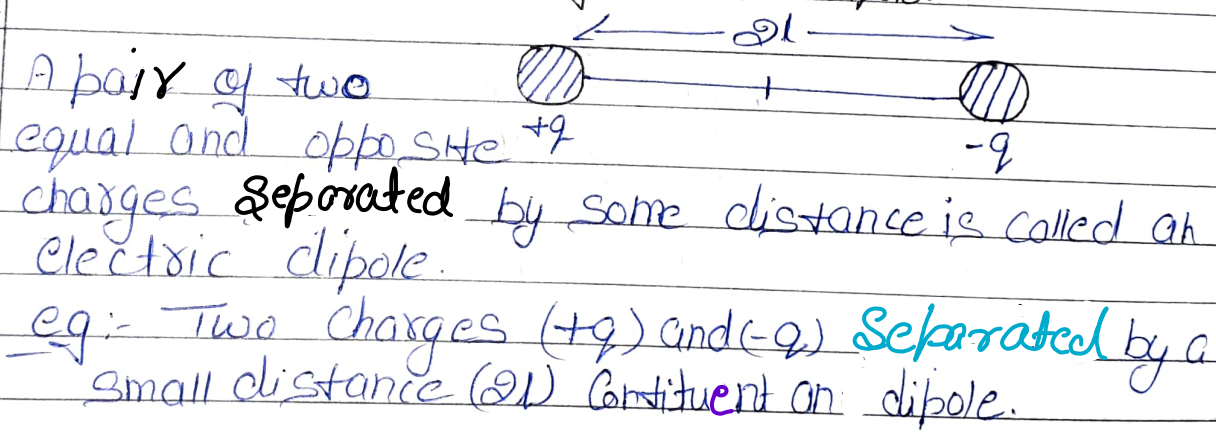 2l
A pair of two
+q
-q
equal and opposite
charges Separated by some distance is called an
electric dipole.
eg:- Two charges (+q) and (-q) Separated by a
small distance (2l) Constituent an dipole.